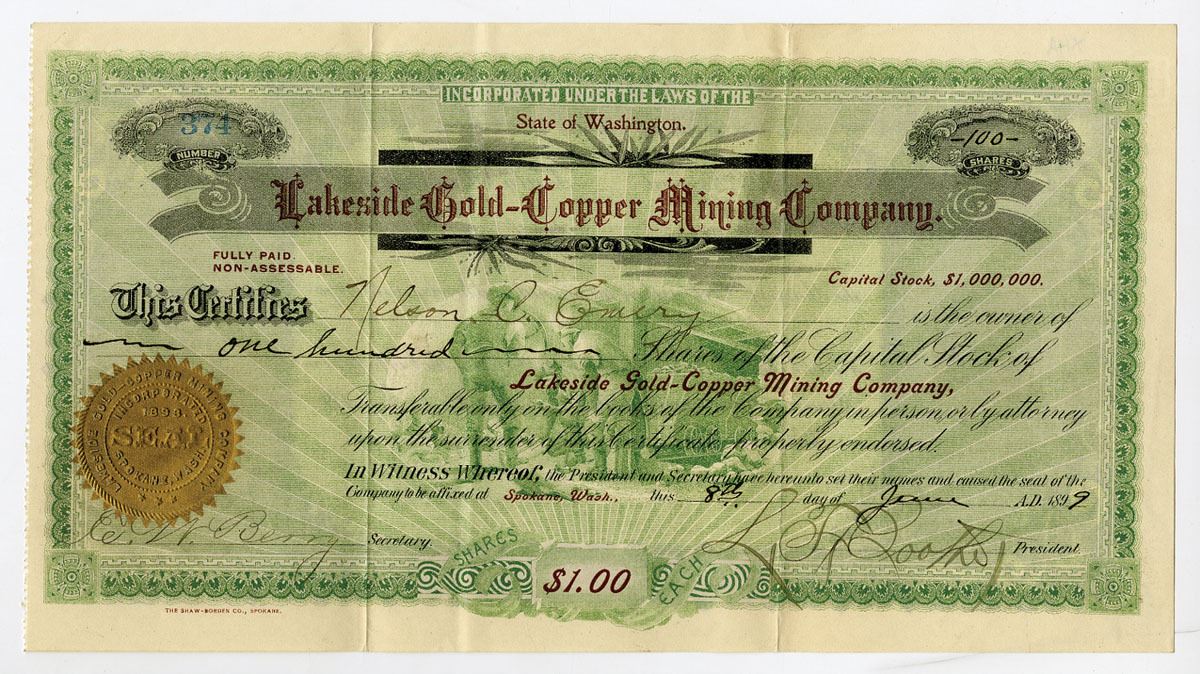 INCORPORATED UNDER THE LAWS OF THE
State of Washington.
374
NUMBER
-100-
SHARES
Lakeside Gold-Copper Mining Company.
FULLY PAID.
NON-ASSESSABLE.
Capital Stock, $1,000,000.
This Certifies Nelson C. Emery is the owner of
one hundred Shares of the Capital Stock of
Lakeside Gold-Copper Mining Company,
Transferable only on the books of the Company in person, or by attorney
upon the surrender of this Certificate properly endorsed.
In Witness Whereof, the President and Secretary have hereunto set their names and caused the seal of the
Company to be affixed at Spokane, Wash., this 8th day of June A.D. 1899
LAKESIDE GOLD-COPPER MINING COMPANY
INCORPORATED
1898.
SEAL
SPOKANE, WASH.
E. W. Berry Secretary.
President.
SHARES $1.00 EACH
THE SHAW-BORDEN CO., SPOKANE.